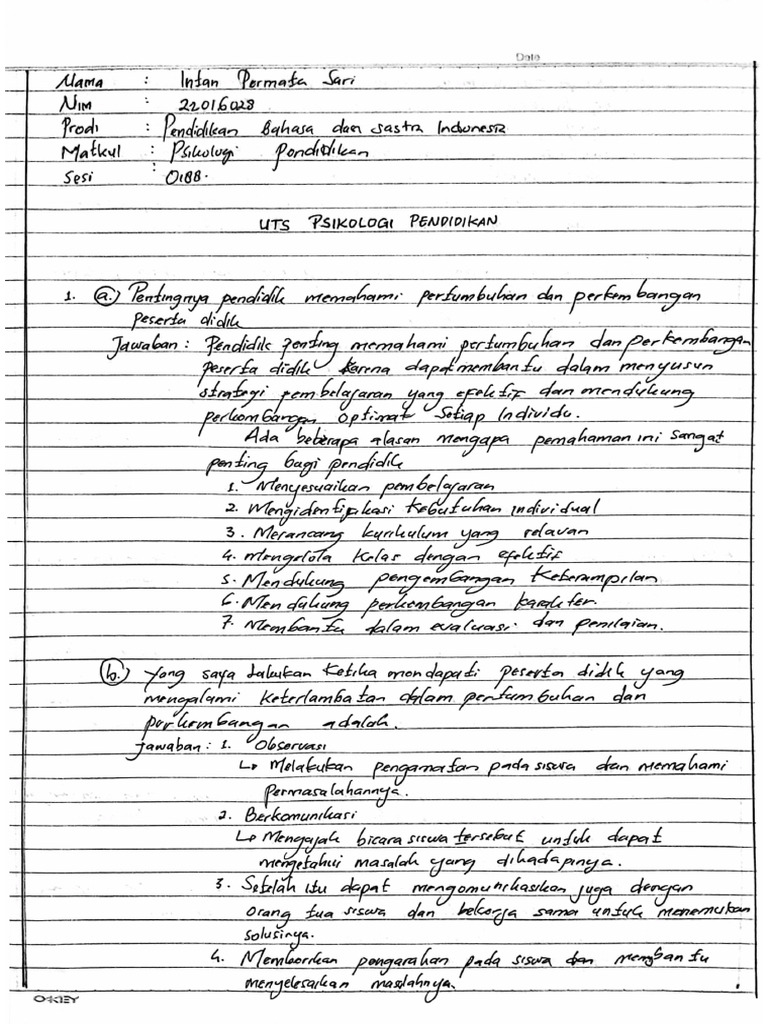 Date
Nama : Intan Permata Sari
NIM : 22016028
Prodi : Pendidikan Bahasa dan Sastra Indonesia
Matkul : Psikologi Pendidikan
Sesi : 0188.
UTS PSIKOLOGI PENDIDIKAN
1. a.) Pentingnya pendidik memahami pertumbuhan dan perkembangan
peserta didik
Jawaban : Pendidik penting memahami pertumbuhan dan perkembangan
peserta didik karena dapat membantu dalam menyusun
strategi pembelajaran yang efektif dan mendukung
perkembangan optimal setiap individu.
Ada beberapa alasan mengapa pemahaman ini sangat
penting bagi pendidik
1. Menyesuaikan pembelajaran
2. Mengidentifikasi Kebutuhan individual
3. Merancang kurikulum yang relavan
4. Mengelola Kelas dengan efektif
5. Mendukung pengembangan Keterampilan
6. Mendukung perkembangan karakter.
7. Membantu dalam evaluasi dan penilaian.
b.) Yang saya lakukan ketika mendapati peserta didik yang
mengalami keterlambatan dalam pertumbuhan dan
perkembangan adalah.
Jawaban : 1. Observasi
↳ Melakukan pengamatan pada siswa dan memahami
permasalahannya.
2. Berkomunikasi
↳ Mengajak bicara siswa tersebut untuk dapat
mengetahui masalah yang dihadapinya.
3. Setelah itu dapat mengomunikasikan juga dengan
orang tua siswa dan bekerja sama untuk menemukan
solusinya.
4. Memberikan pengarahan pada siswa dan membantu
menyelesaikan masalahnya.